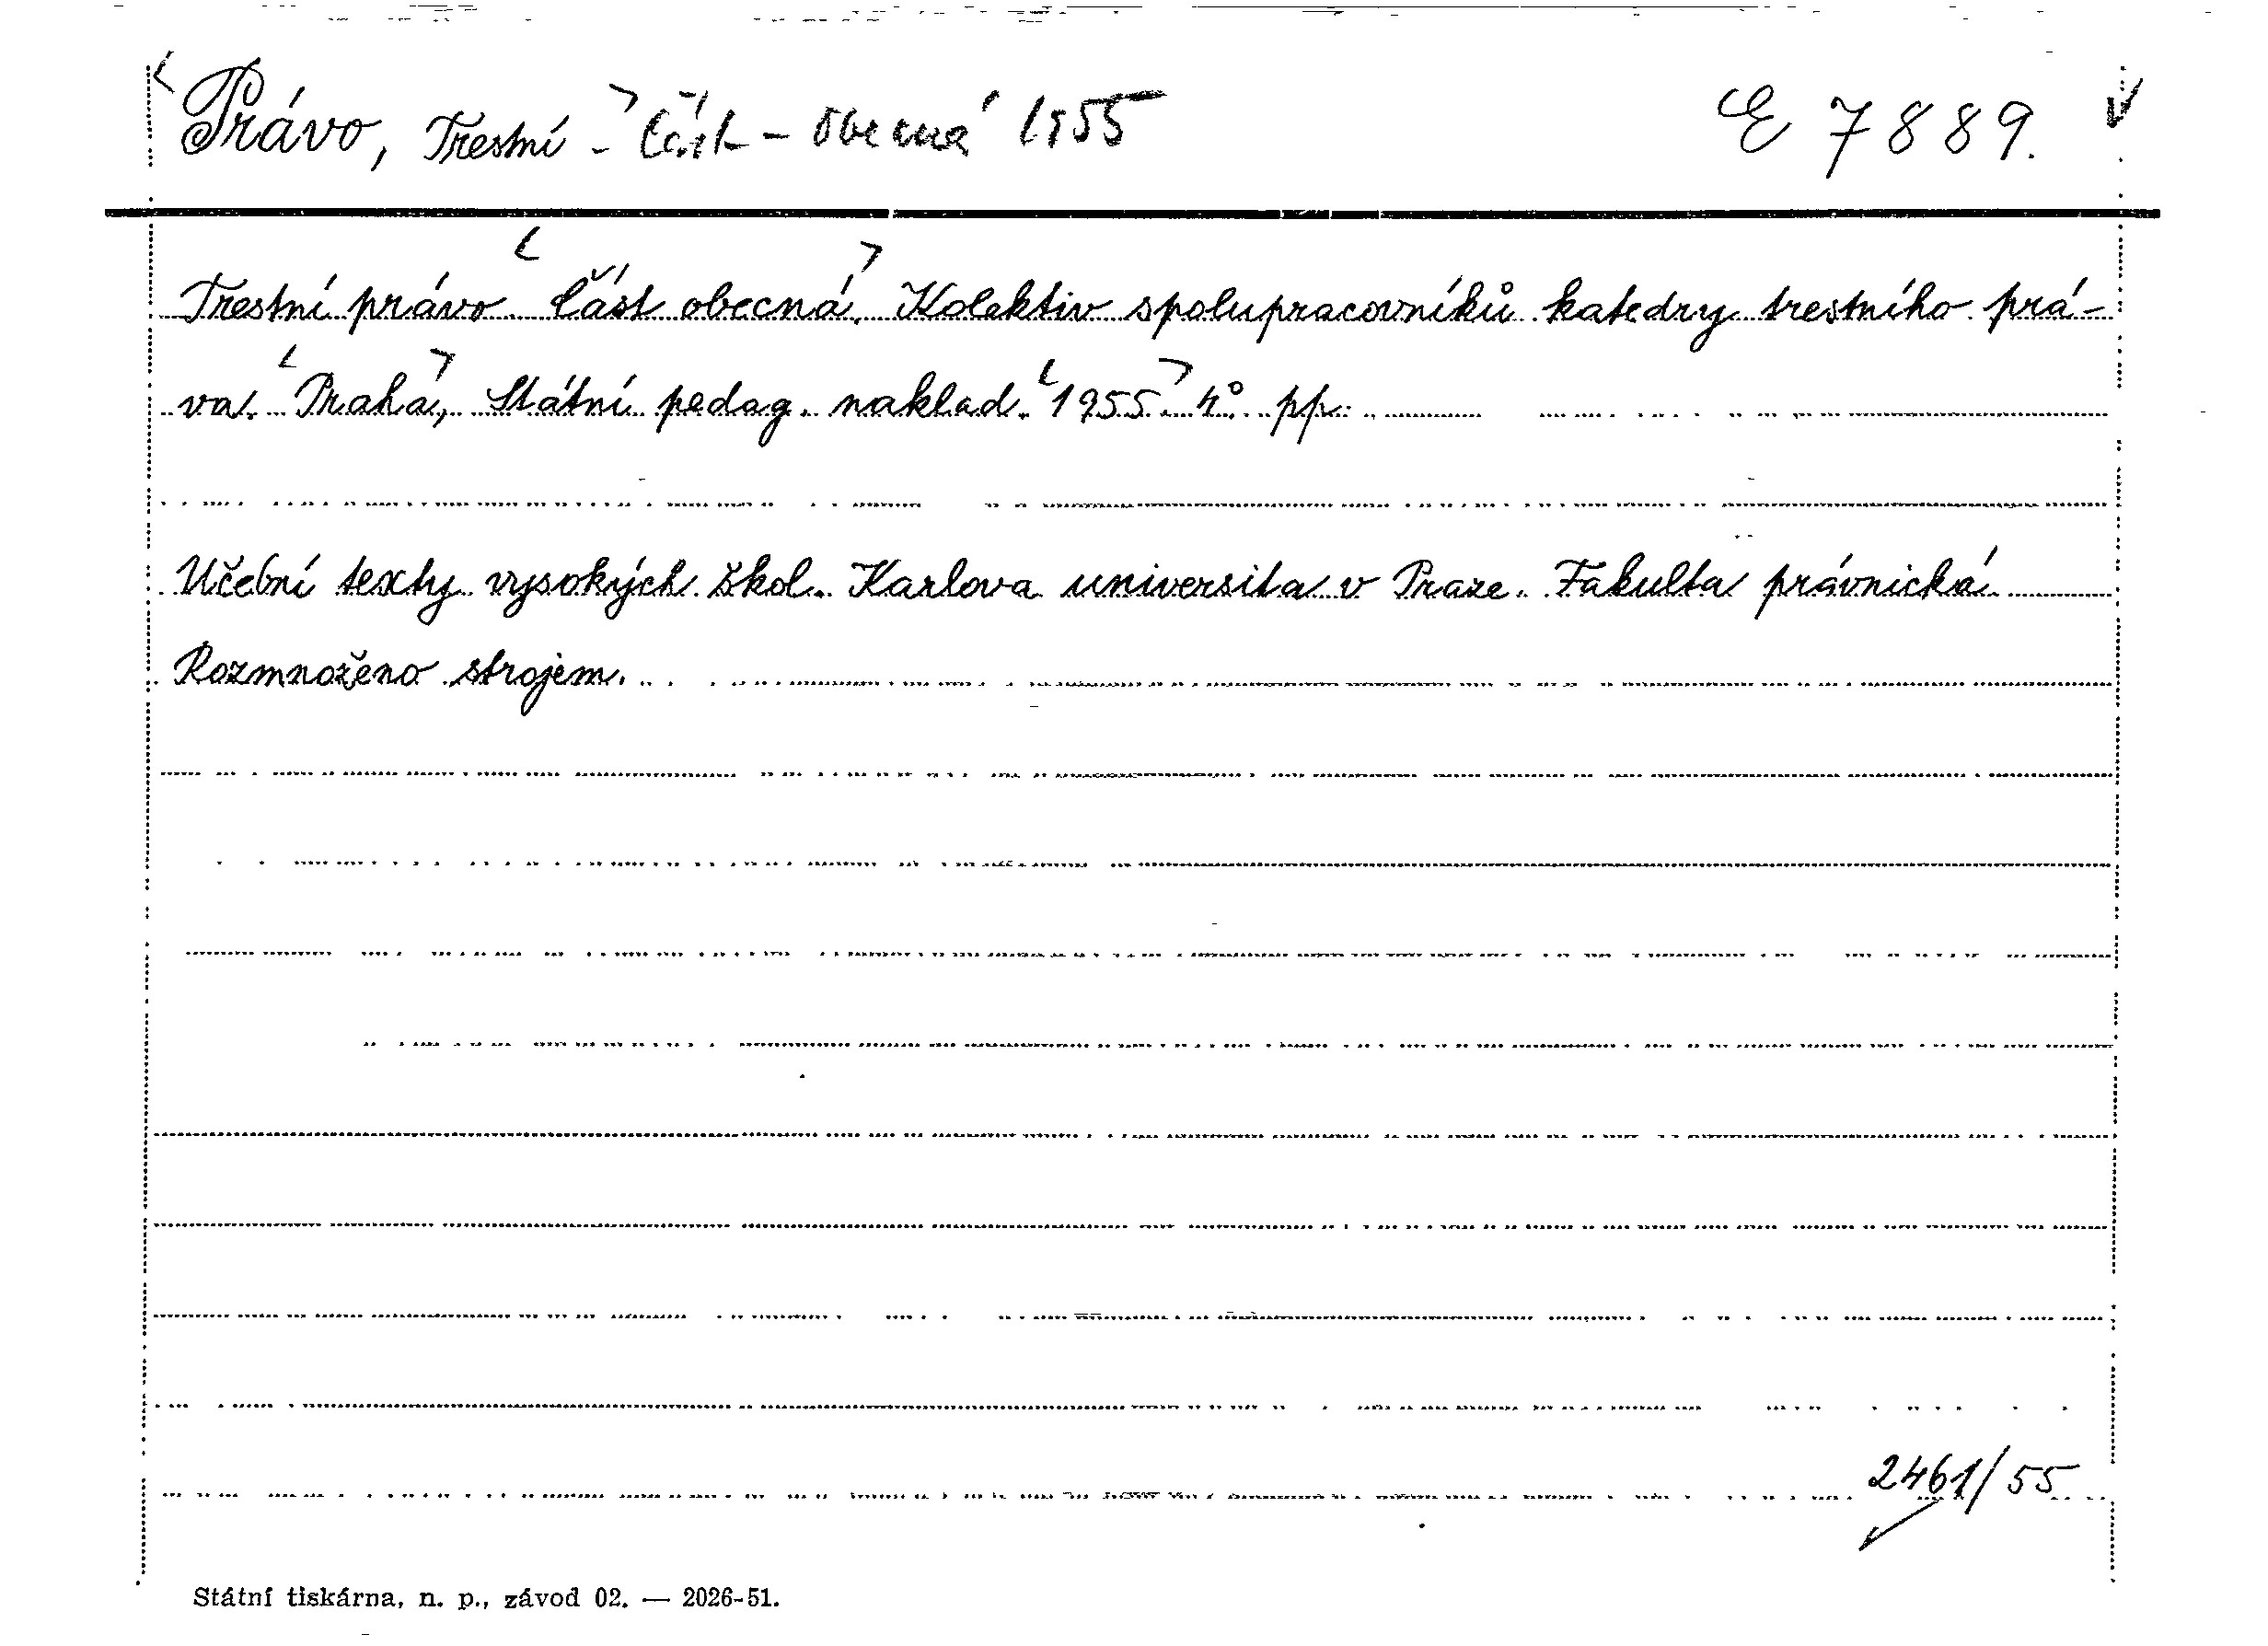 Právo, Trestní - Část - obecná 1955 E 7889.
Trestní právo. Část obecná. Kolektiv spolupracovníků katedry trestního prá-
va. Praha, Státní pedag. naklad. 1955. 4° pp.
Učební texty vysokých škol. Karlova universita v Praze. Fakulta právnická
Rozmnoženo strojem.
2461/55
Státní tiskárna, n. p., závod 02. — 2026-51.